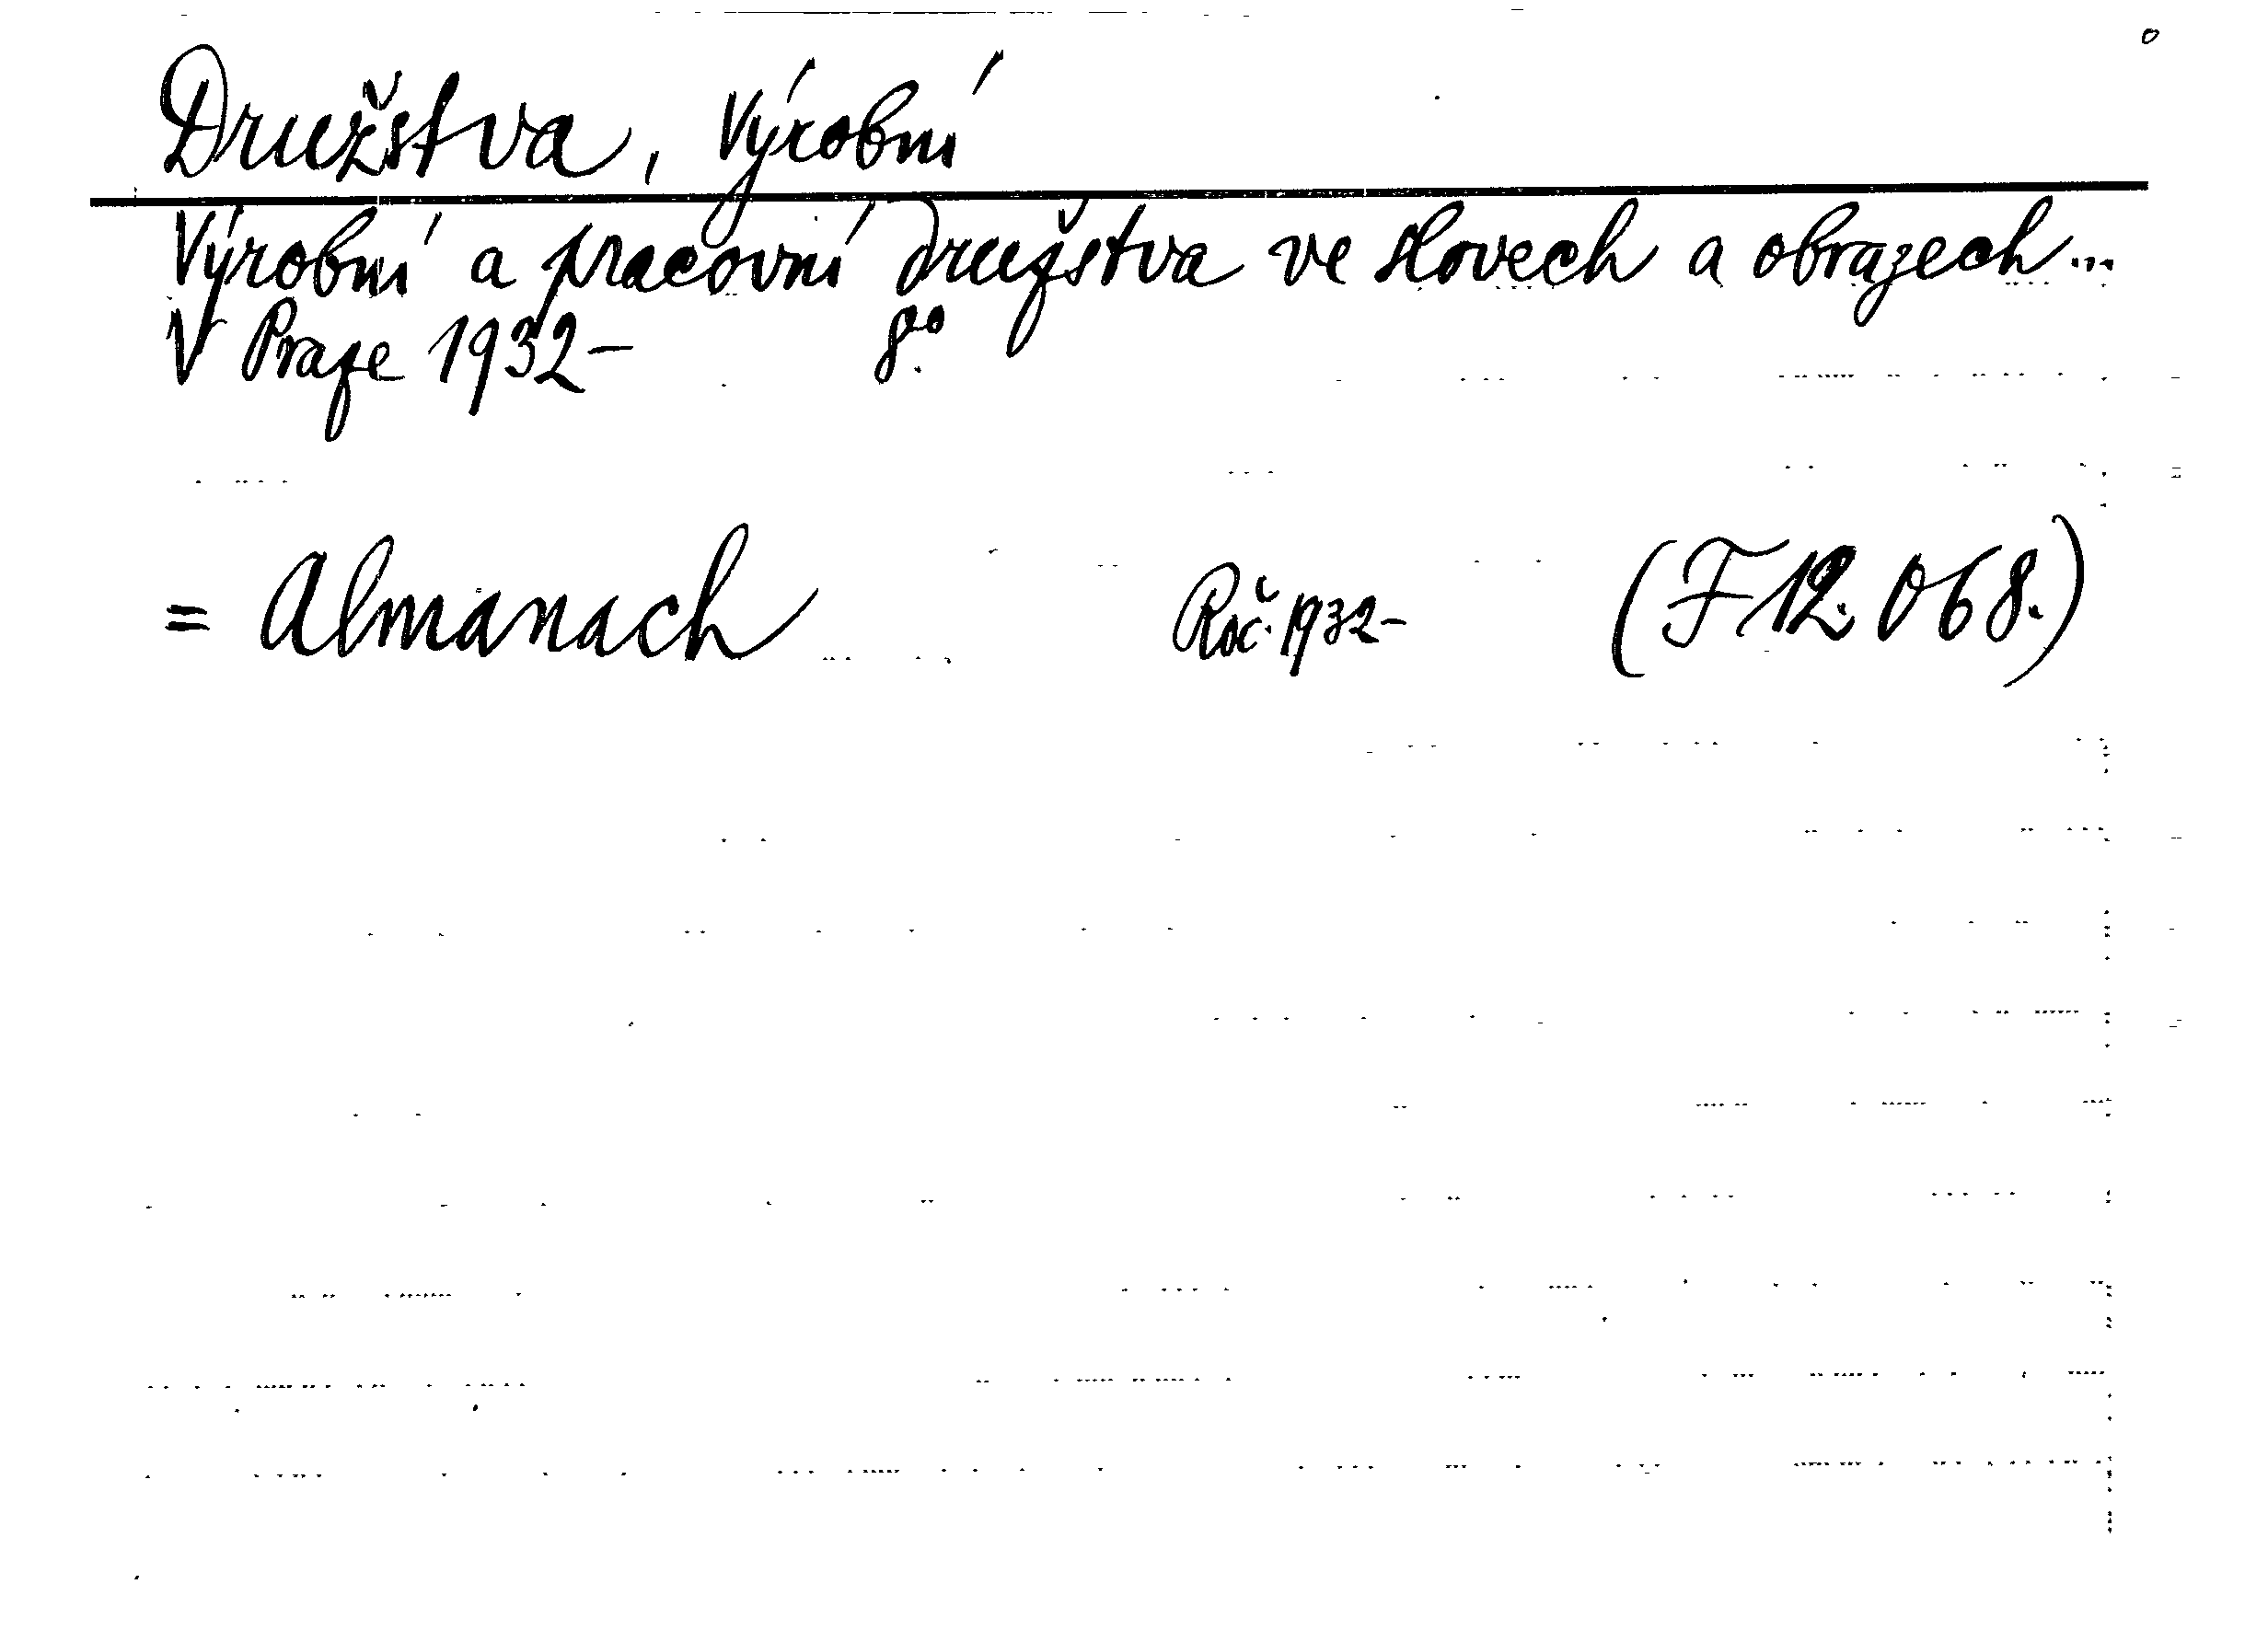 Družstva, výrobní
Výrobní a pracovní družstva ve slovech a obrazech...
V Praze 1932- 8°.
= Almanach Roč. 1932- (F 12.068.)